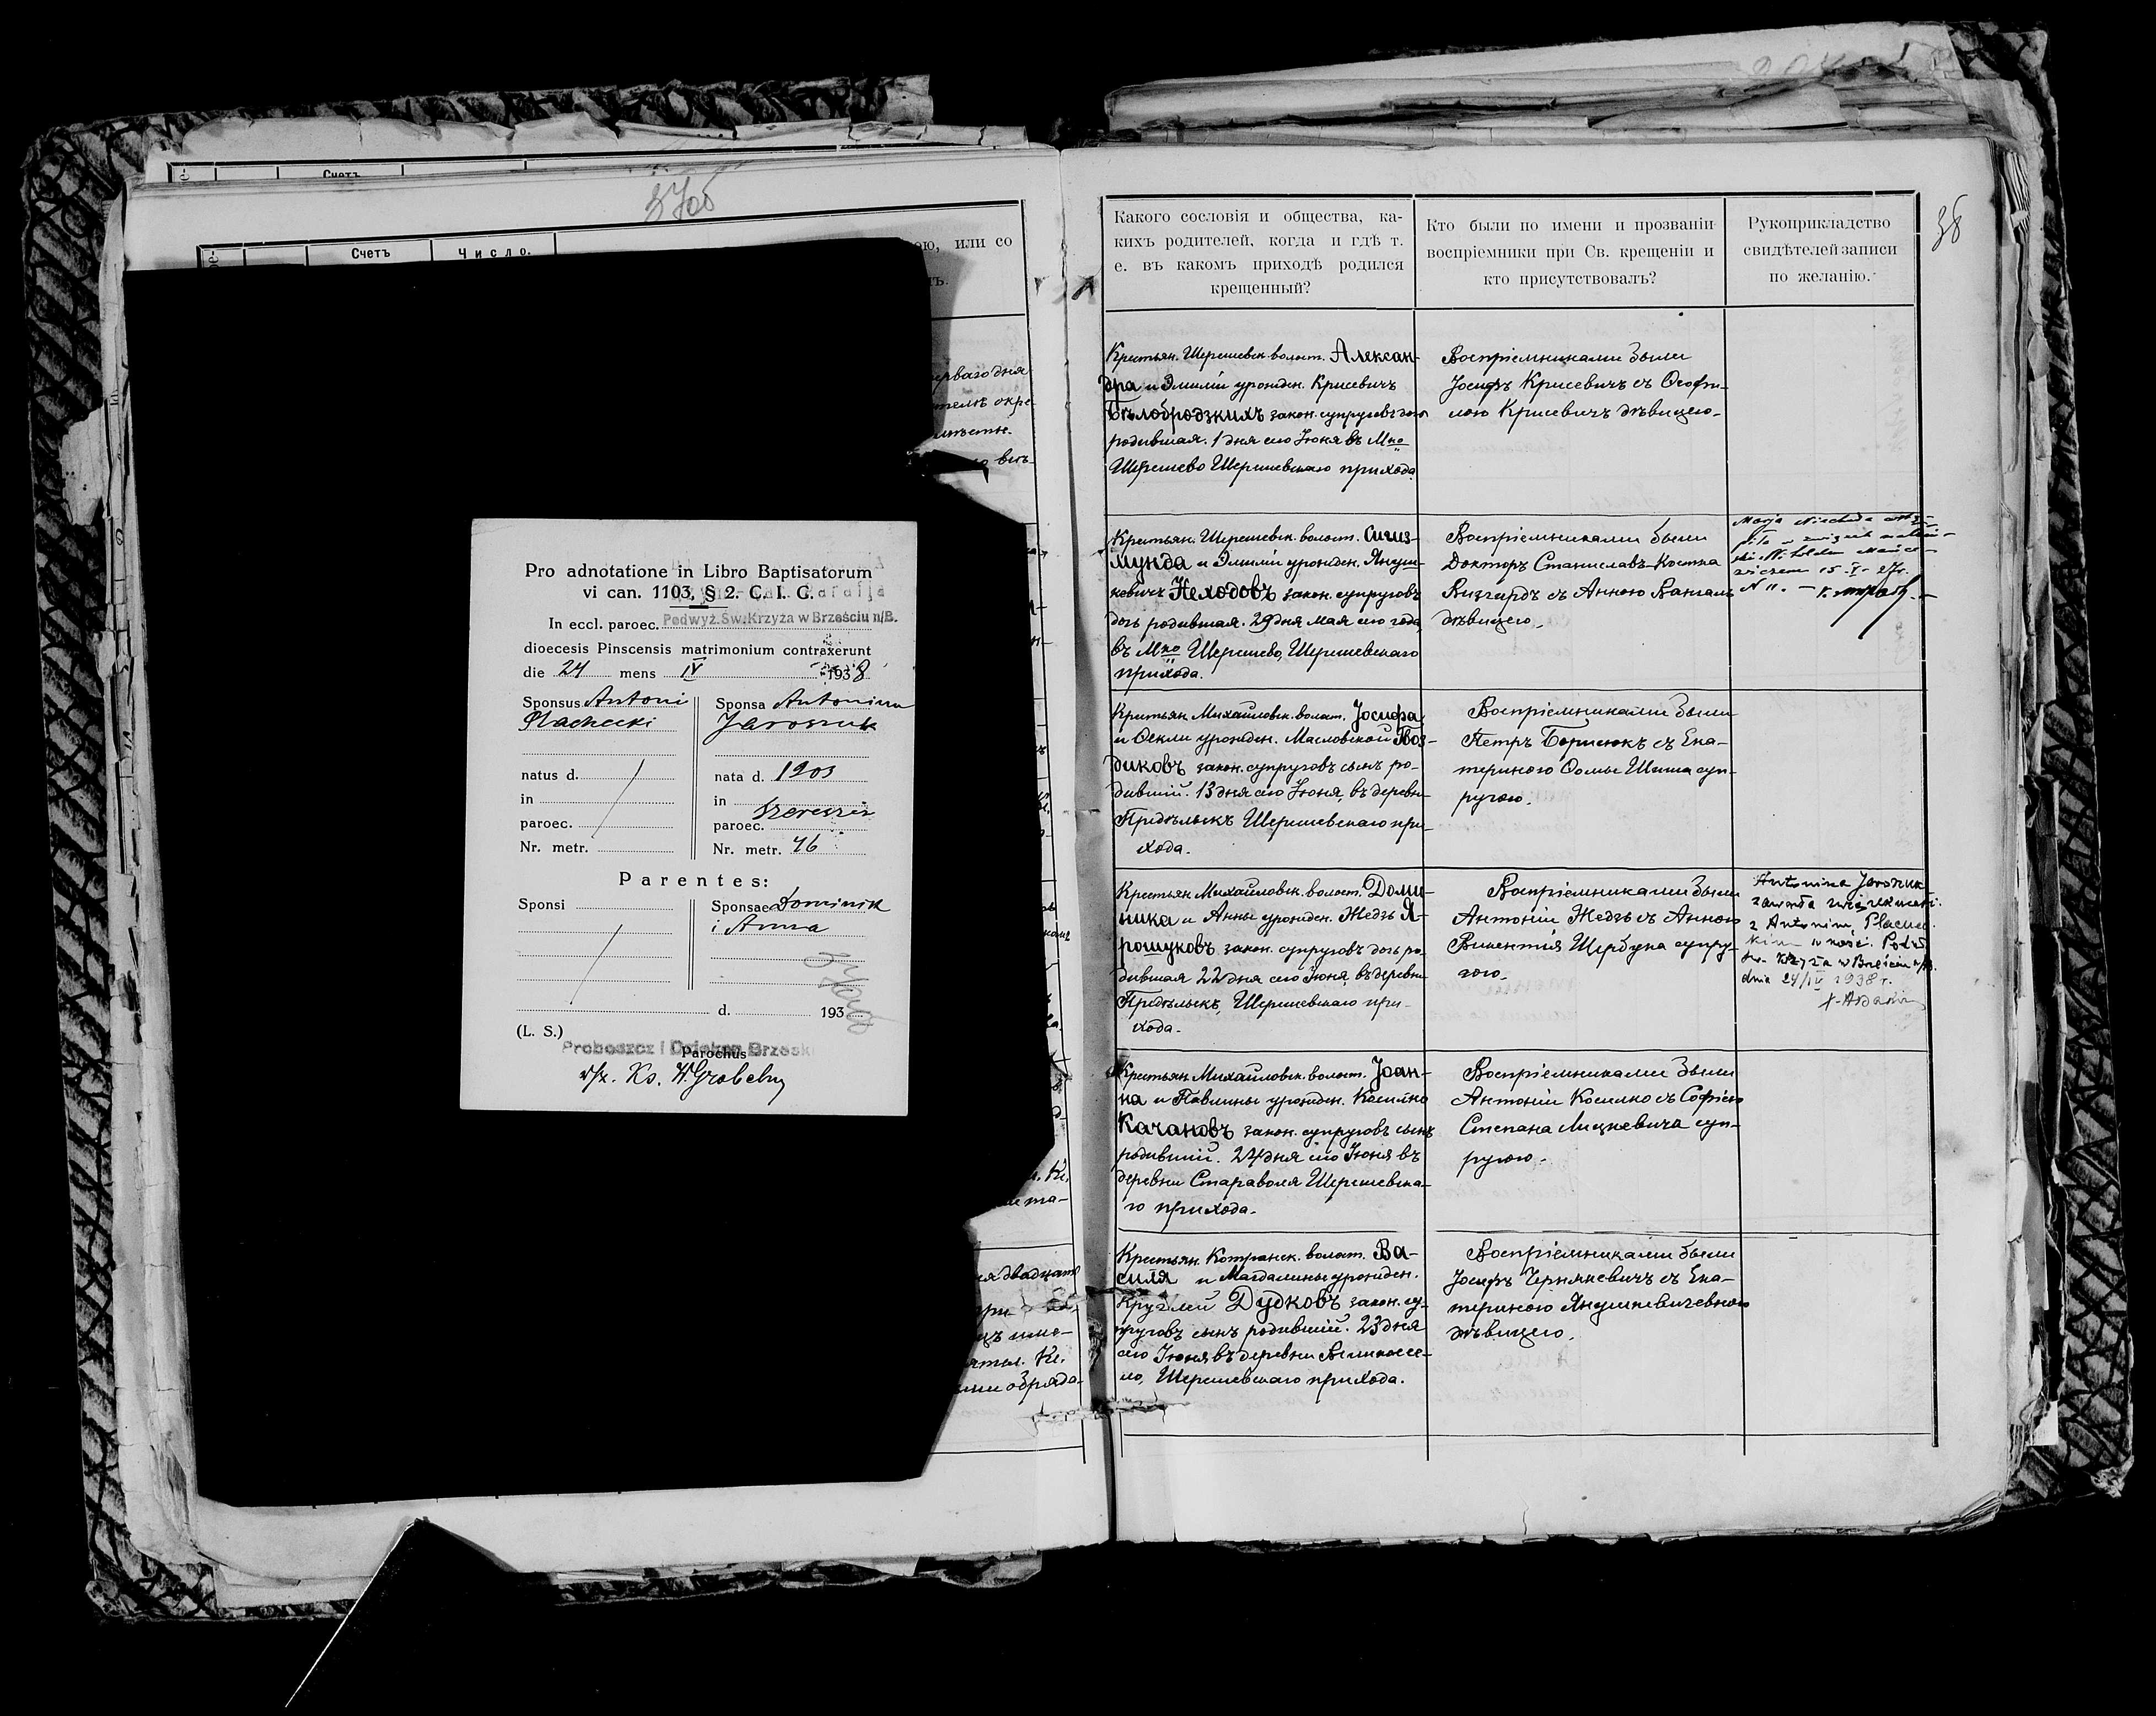 Счетъ
37об
Счетъ
Число.
ою, или со
ть.
перваго дня
Pro adnotatione in Libro Baptisatorum
vi can. 1103, § 2. C. I. C.
In eccl. paroec. Podwyż. Św. Krzyża w Brześciu n/B.
dioecesis Pinscensis matrimonium contraxerunt
die 24 mens IV 1938
Sponsus Antoni
Płachecki
natus d.
in
paroec.
Nr. metr.
Sponsa Antonina
Jaroszuk
nata d. 1903
in
paroec. Szereszów
Nr. metr. 46
Parentes:
Sponsi
Sponsae Dominik
i Anna
d. 193
(L. S.)
Proboszcz i Dziekan Brzeski
Parochus
Ks. W. Grobelny
38
Какого сословія и общества, ка-
кихъ родителей, когда и гдѣ т.
е. въ какомъ приходѣ родился
крещенный?
Кто были по имени и прозванію
воспріемники при Св. крещеніи и
кто присутствовалъ?
Рукоприкладство
свидѣтелей записи
по желанію.
Крестьян. Шерешевск. волост. Алексан-
дра и Эмиліи урожден. Крисевичъ
Бѣлобродзкихъ закон. супруговъ дочь
родившая. 1 дня сего Іюня въ Мко
Шерешево Шерешевскаго прихода.
Воспріемниками были
Іосифъ Крисевичъ съ Ѳеофи-
лою Крисевичъ дѣвицею.
Крестьян. Шерешевск. волост. Сигиз-
мунда и Эмиліи урожден. Януш-
кевичъ Неходовъ закон. супруговъ
дочь родившая. 29 дня мая сего года,
въ Мко Шерешево, Шерешевскаго
прихода.
Воспріемниками были
Докторъ Станиславъ-Костка
Визгирдъ съ Анною
дѣвицею.
Marja Niechoda
15-V-27r.
N 11.
Крестьян Михайловск. волост. Іосифа
и Ѳекли урожден. Масловской Гвоз-
диковъ закон. супруговъ сынъ ро-
дившій. 13 дня сего Іюня, въ деревни
Предѣльскъ Шерешевскаго при-
хода.
Воспріемниками были
Петръ Борисюкъ съ Ека-
териною Ѳомы Шиша суп-
ругою.
Крестьян Михайловск. волост. Доми-
ника и Анны урожден. Жедзь Я-
рошуковъ закон. супруговъ дочь ро-
дившая 22 дня сего Іюня, въ деревни
Предѣльскъ, Шерешевскаго при-
хода.
Воспріемниками были
Антоній Жедзь съ Анною
Викентія Щербука супру-
гою.
Antonina Jaroszuk
zawarła związek małż.
z Antonim Płachec-
kim w kość. Podw.
Św. Krzyża w Brześciu n/B.
dnia 24/IV 1938 r.
Крестьян Михайловск. волост. Іоан-
на и Павлины урожден. Косилко
Качановъ закон. супруговъ сынъ
родившій. 24 дня сего Іюня въ
деревни Старaволя Шерешевска-
го прихода.
Воспріемниками были
Антоній Косилко съ Софіею
Степана Лицкевича суп-
ругою.
Крестьян. Котранск. волост. Ва-
силя и Магдалины урожден.
Круглей Дудковъ закон. су-
пруговъ сынъ родившій. 23 дня
сего Іюня въ деревни Великосе-
ло, Шерешевскаго прихода.
Воспріемниками были
Іосифъ Чернякевичъ съ Ека-
териною Янушкевичевною
дѣвицею.